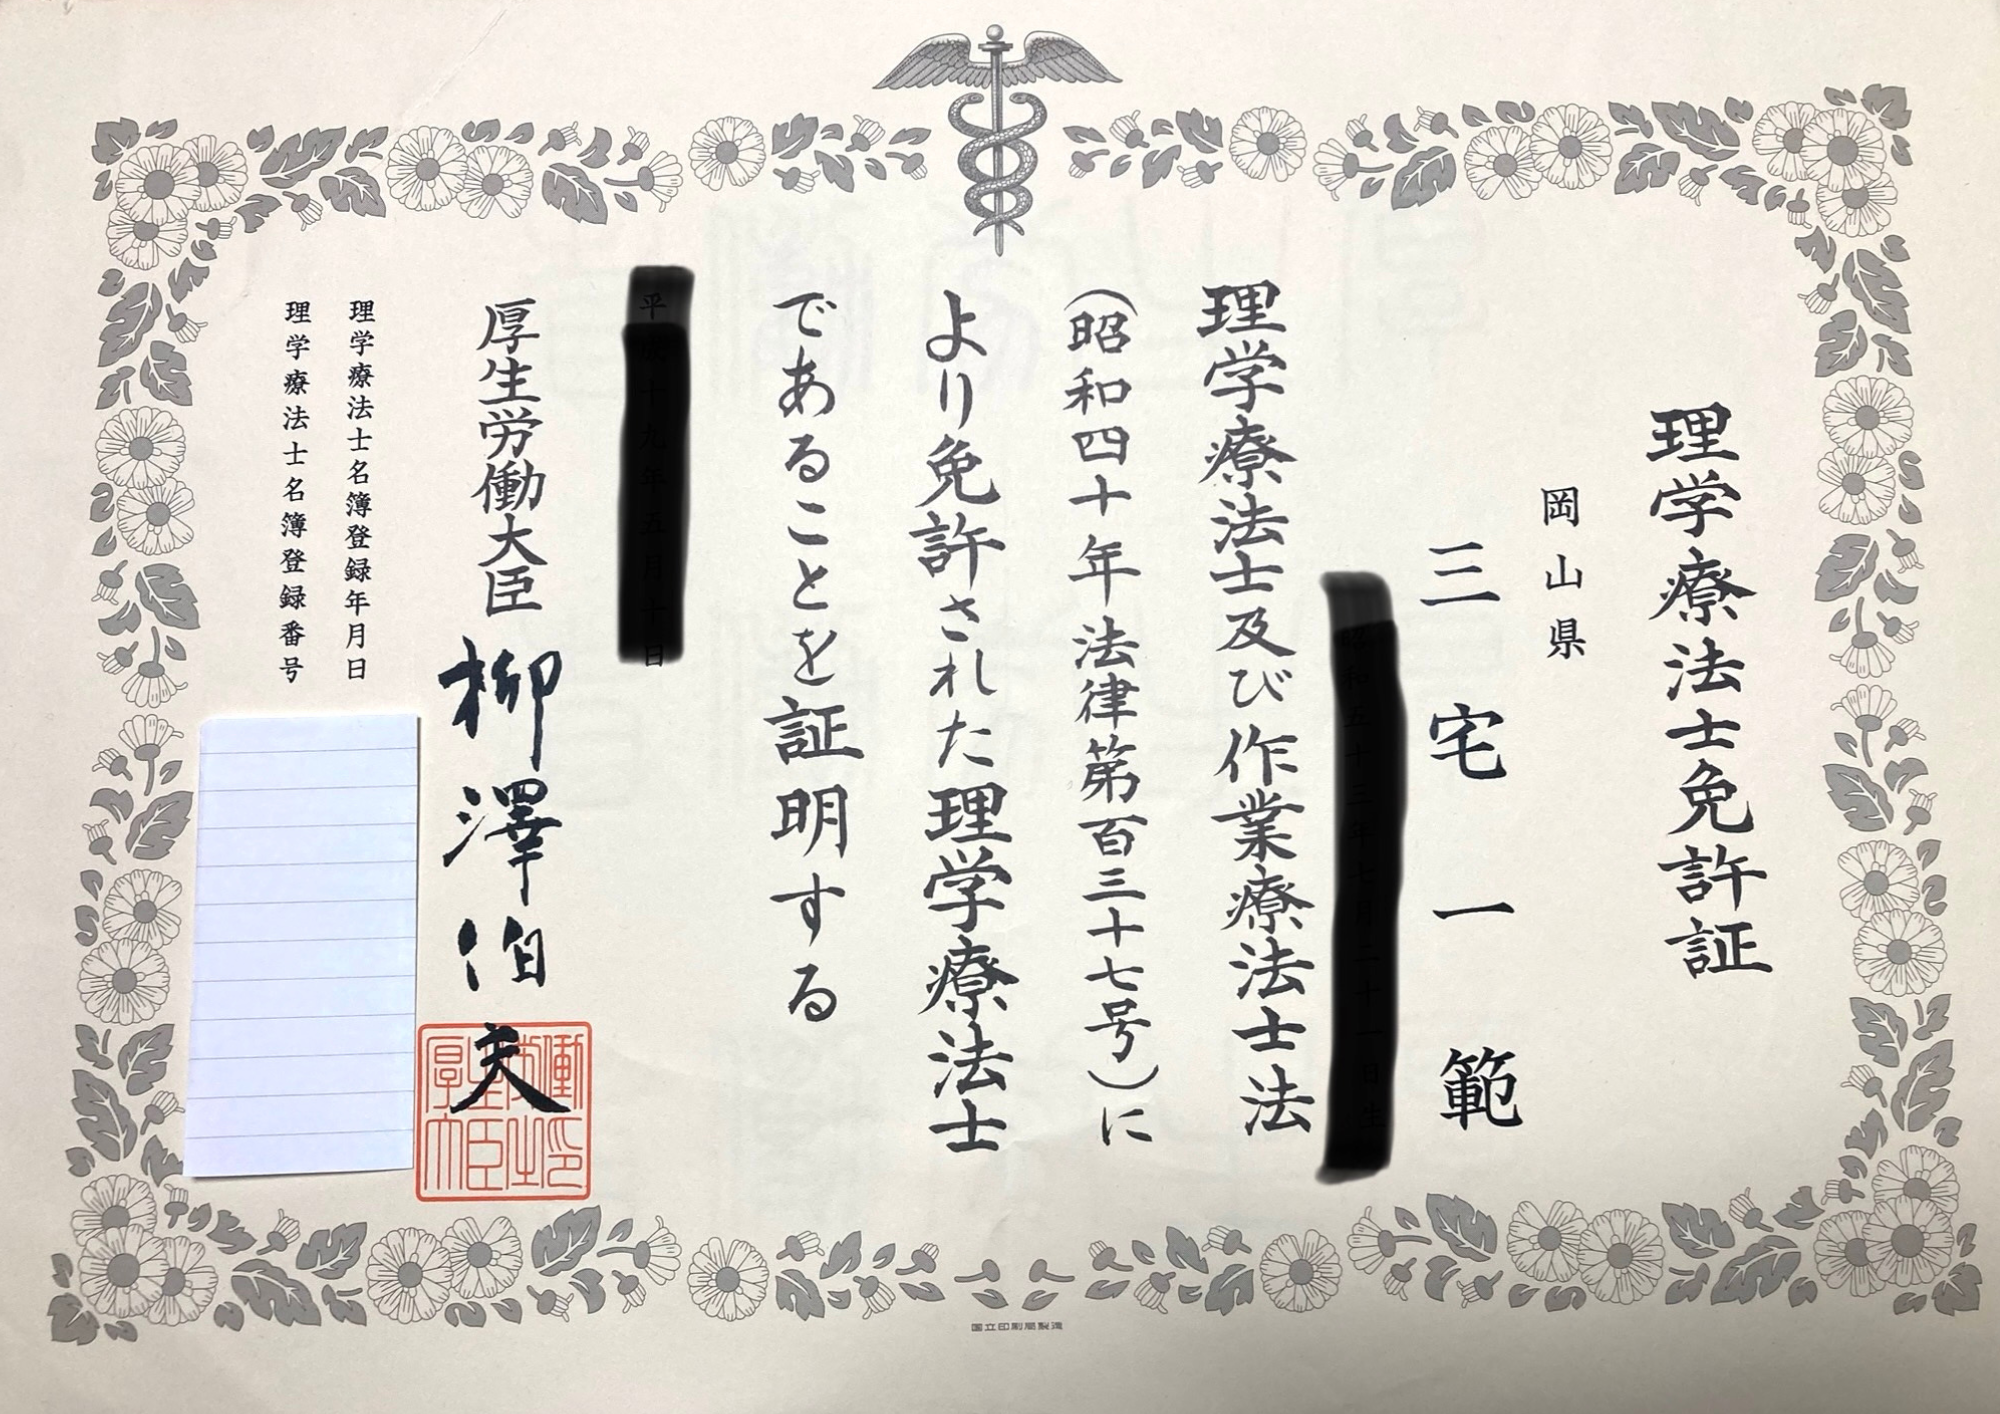 理学療法士免許証
岡山県
三宅一範
理学療法士及び作業療法士法
（昭和四十年法律第百三十七号）に
より免許された理学療法士
であることを証明する
厚生労働大臣 柳澤伯夫
理学療法士名簿登録年月日
理学療法士名簿登録番号
国立印刷局製造